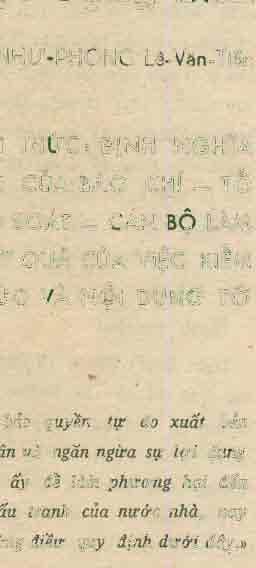 NHƯ-PHONG Lê-Văn-Tiến
THỨC: ĐỊNH NGHĨA
CỦA BÁO CHÍ — TỔ
SOÁT — CÁN BỘ LÀM
QUẢ CỦA VIỆC KIỂM
VÀ NỘI DUNG TỜ
quyền tự do xuất bản
và ngăn ngừa sự lợi dụng
ấy để làm phương hại đến
tranh của nước nhà, nay
điều quy định dưới đây.»